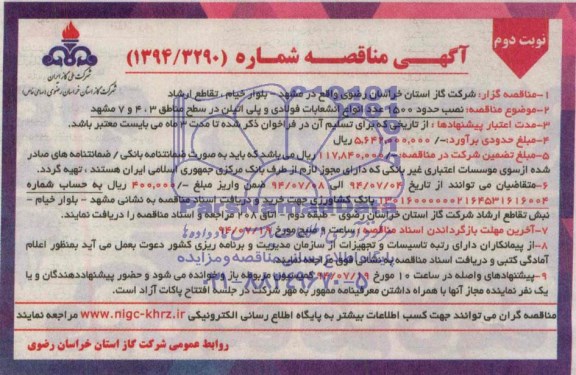 نوبت دوم
آگهی مناقصه شماره (۱۳۹۴/۳۲۹۰)
شرکت ملی گاز ایران
شرکت گاز استان خراسان رضوی (سهامی خاص)
۱-مناقصه گزار: شرکت گاز استان خراسان رضوی واقع در مشهد - بلوار خیام ، تقاطع ارشاد
۲-موضوع مناقصه: نصب حدود ۱۵۰۰ عدد انواع انشعابات فولادی و پلی اتیلن در سطح مناطق ۳ ، ۴ و ۷ مشهد
۳-مدت اعتبار پیشنهادها : از تاریخی که برای تسلیم آن در فراخوان ذکر شده تا مدت ۳ ماه می بایست معتبر باشد.
۴-مبلغ حدودی برآورد: ریال
۵-مبلغ تضمین شرکت در مناقصه: ۱۱۷,۸۴۰,۰۰۰/- ریال می باشد که باید به صورت ضمانتنامه بانکی / ضمانتنامه های صادر
شده ازسوی موسسات اعتباری غیر بانکی که دارای مجوز لازم از طرف بانک مرکزی جمهوری اسلامی ایران هستند ، تهیه گردد.
۶-متقاضیان می توانند از تاریخ ۹۴/۰۷/۰۲ الی ۹۴/۰۷/۰۸ ضمن واریز مبلغ /۴۰۰,۰۰۰ ریال به حساب شماره
بانک کشاورزی جهت خرید و دریافت اسناد مناقصه به نشانی مشهد - بلوار خیام -
نبش تقاطع ارشاد شرکت گاز استان خراسان رضوی - طبقه دوم - اتاق ۲۰۸ مراجعه و اسناد مناقصه را دریافت نمایند.
۷-آخرین مهلت بازگرداندن اسناد مناقصه ساعت مورخ
۸-از پیمانکاران دارای رتبه تاسیسات و تجهیزات از سازمان مدیریت و برنامه ریزی کشور دعوت بعمل می آید بمنظور اعلام
آمادگی کتبی و دریافت اسناد مناقصه به نشانی فوق مراجعه نمایند.
۹-پیشنهادهای واصله در ساعت ۱۰ مورخ ۹۴/۰۷/۲۹ کمیسیون مربوطه باز و خوانده می شود و حضور پیشنهاددهندگان و یا
یک نفر نماینده مجاز آنها با همراه داشتن معرفینامه ممهور به مهر شرکت در جلسه افتتاح پاکات آزاد است.
مناقصه گران می توانند جهت کسب اطلاعات بیشتر به پایگاه اطلاع رسانی الکترونیکی www.nigc-khrz.ir مراجعه نمایند
روابط عمومی شرکت گاز استان خراسان رضوی